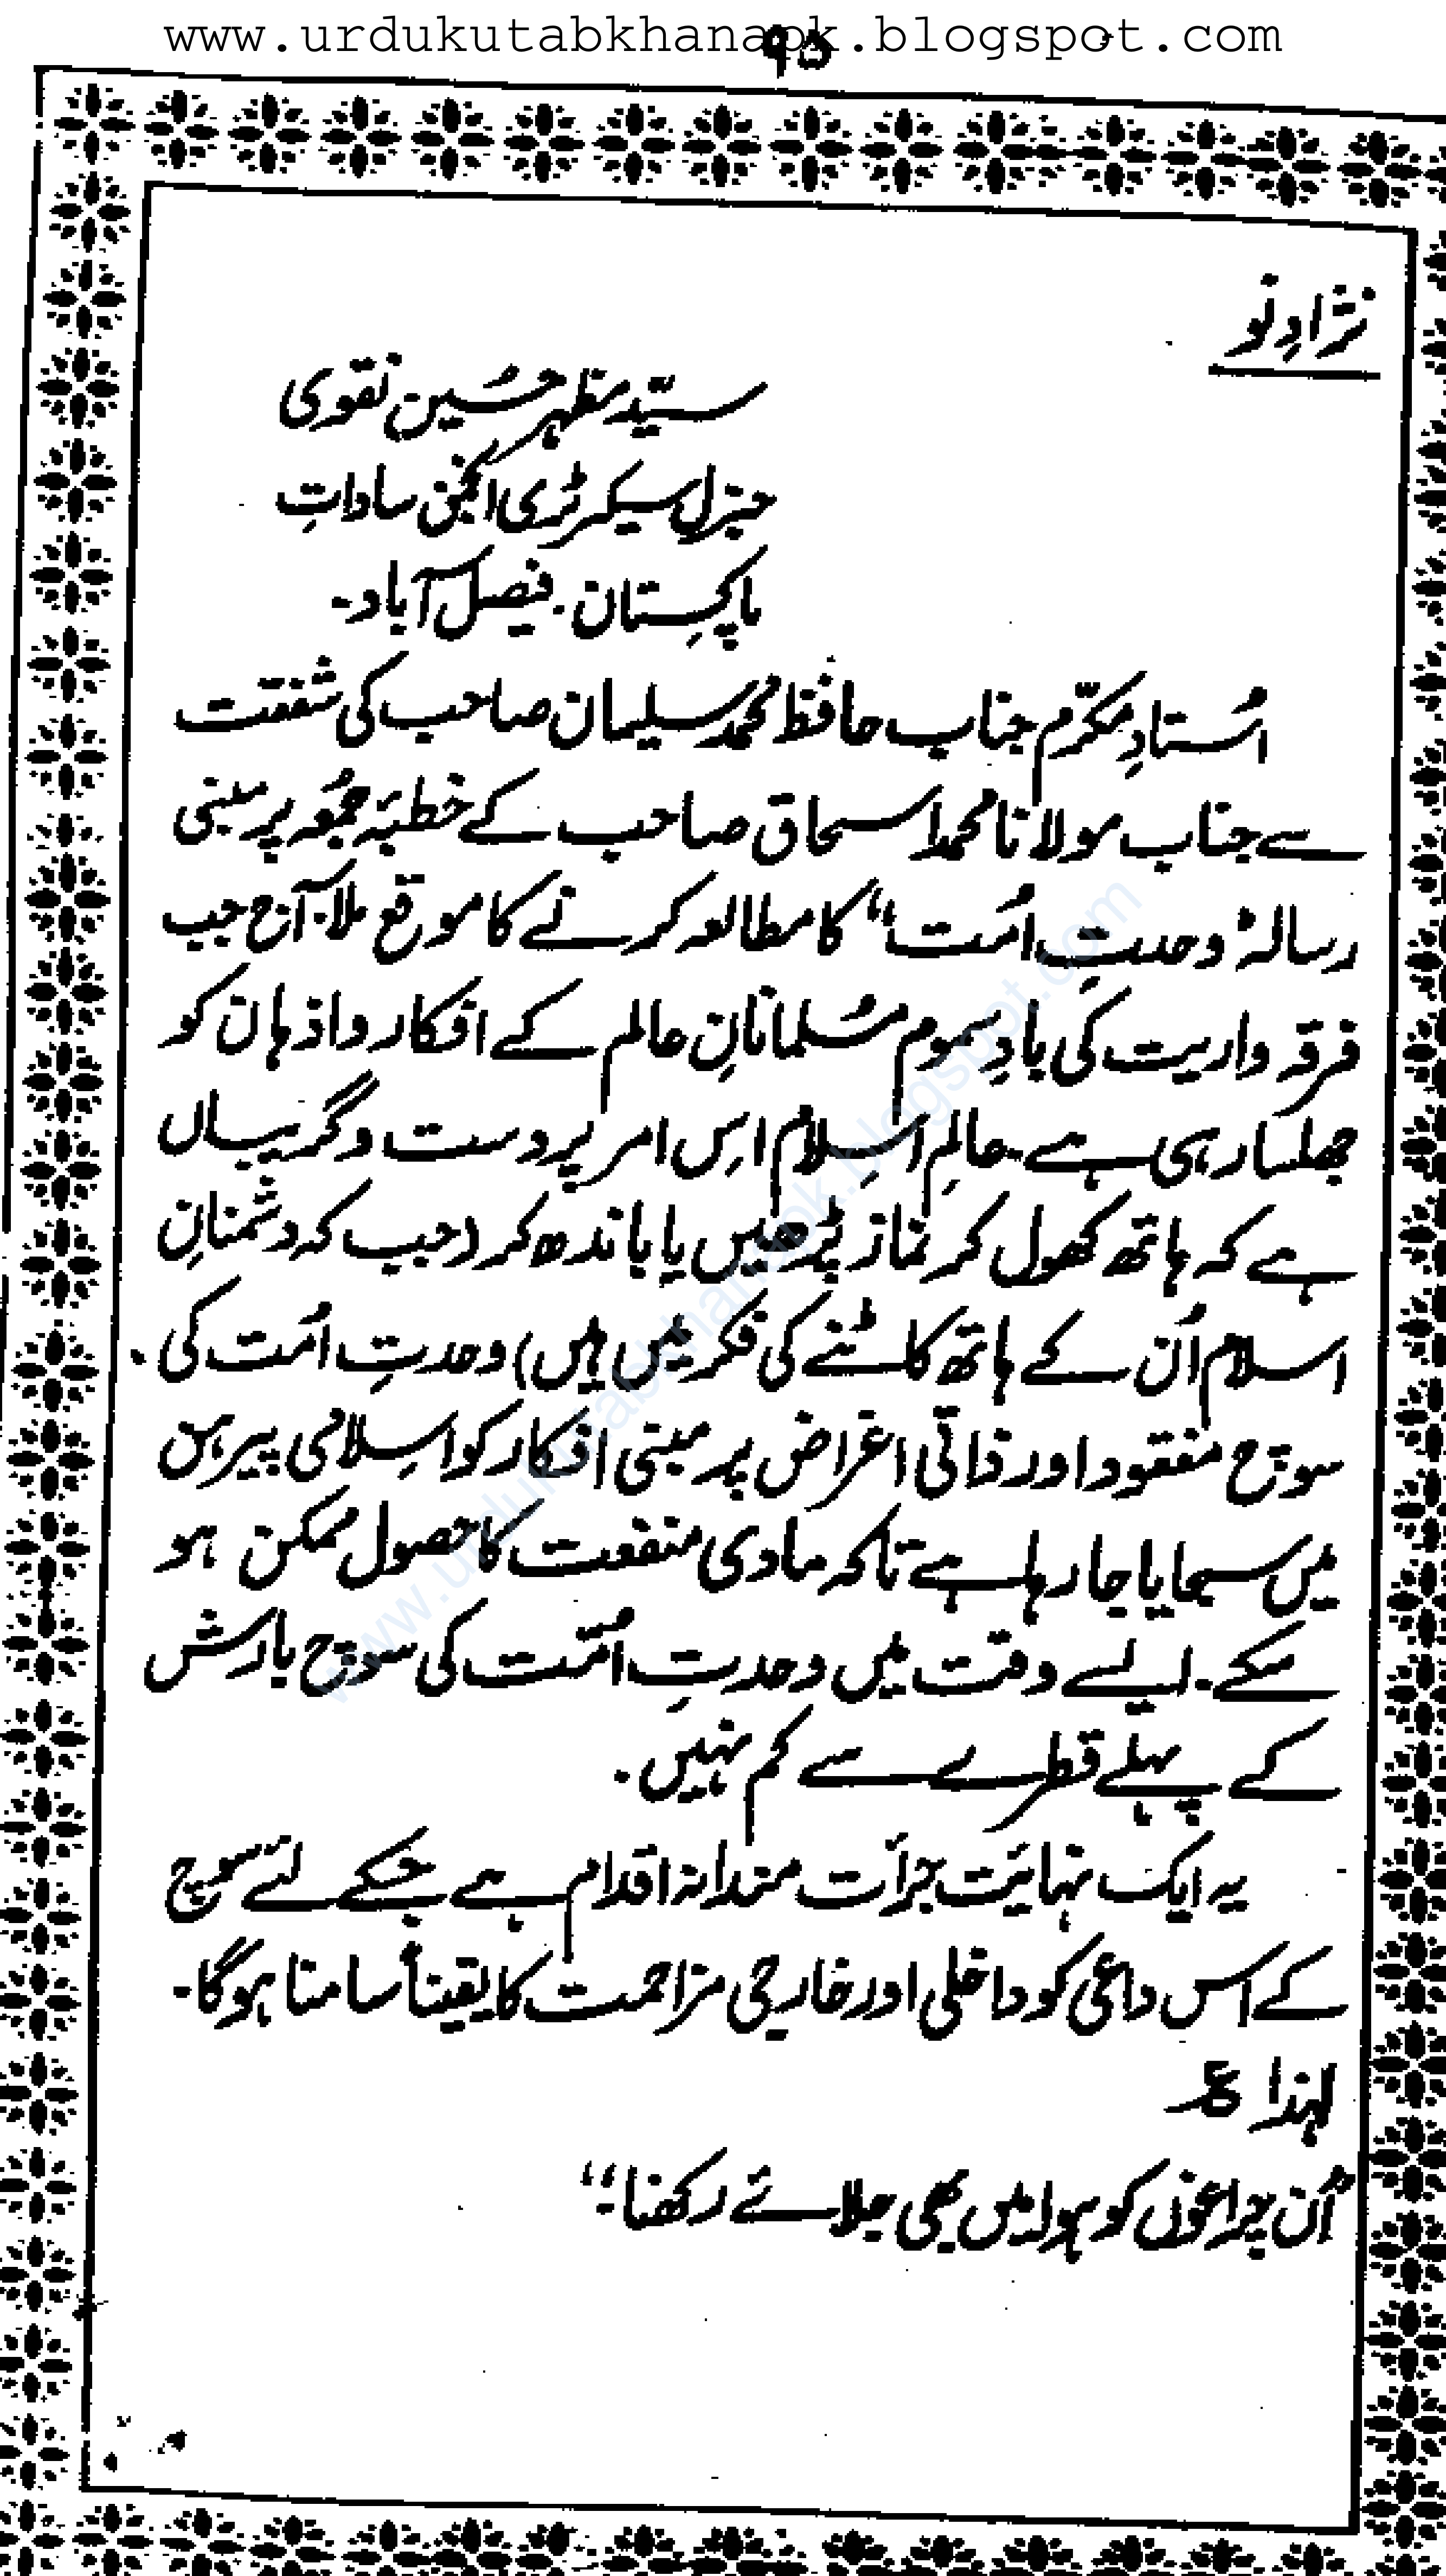 www.urdukutabkhanapk.blogspot.com
۹۵
نژادِ نو
سیّد مظہر حُسین نقوی
جنرل سیکرٹری انجمن ساداتِ
پاکِستان ۔ فیصل آباد ۔
اُستادِ مکرّم جناب حافظ محمد سلیمان صاحب کی شفقت
سے جناب مولانا محمد اسحاق صاحب کے خطبۂ جمُعہ پر مبنی
رسالہ "وحدتِ اُمت" کا مطالعہ کرنے کا موقع ملا۔ آج جب
فرقہ واریت کی بادِ سموم مسُلمانانِ عالم کے افکار و اذہان کو
جھلسا رہی ہے ۔ عالمِ اسِلام اسِ امر پر دست و گریباں
ہے کہ ہاتھ کھول کر نماز پڑھیں یا باندھ کر (جب کہ دشمنانِ
اسلام اُن کے ہاتھ کاٹنے کی فکر میں ہیں) وحدتِ اُمت کی
سوچ مفقود اور ذاتی اغراض پر مبنی افکار کو اسِلامی پیرہن
میں سجایا جا رہا ہے تاکہ مادی منفعت کا حصول ممکن ہو
سکے ۔ ایسے وقت میں وحدتِ اُمّت کی سوچ بارش
کے پہلے قطرے سے کم نہیں ۔
یہ ایک نہائیت جرأت مندانہ اقدام ہے جسکے لئے سوچ
کے اس داعی کو داخلی اور خارجی مزاحمت کا یقیناً سامنا ہوگا ۔
لہٰذا ع
"اُن چراغوں کو ہوا میں بھی جلائے رکھنا ۔"
www.urdukutabkhanapk.blogspot.com